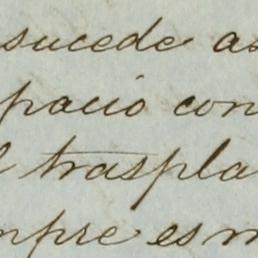 sucede as
pacio con
l traspla
mpre es m